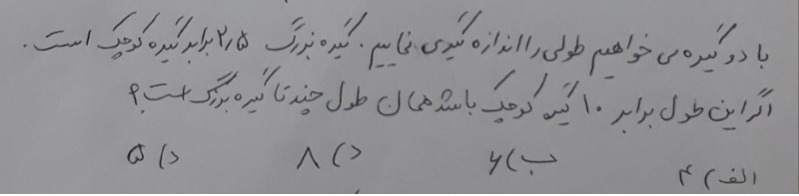 با دو گیره می خواهیم طولی را اندازه گیری نماییم. گیره بزرگ ۲٫۵ برابر گیره کوچک است.
اگر این طول برابر ۱۰ گیره کوچک باشد همان طول چند تا گیره بزرگ است؟
الف) ۴ ب) ۶ د) ۸ د) ۵